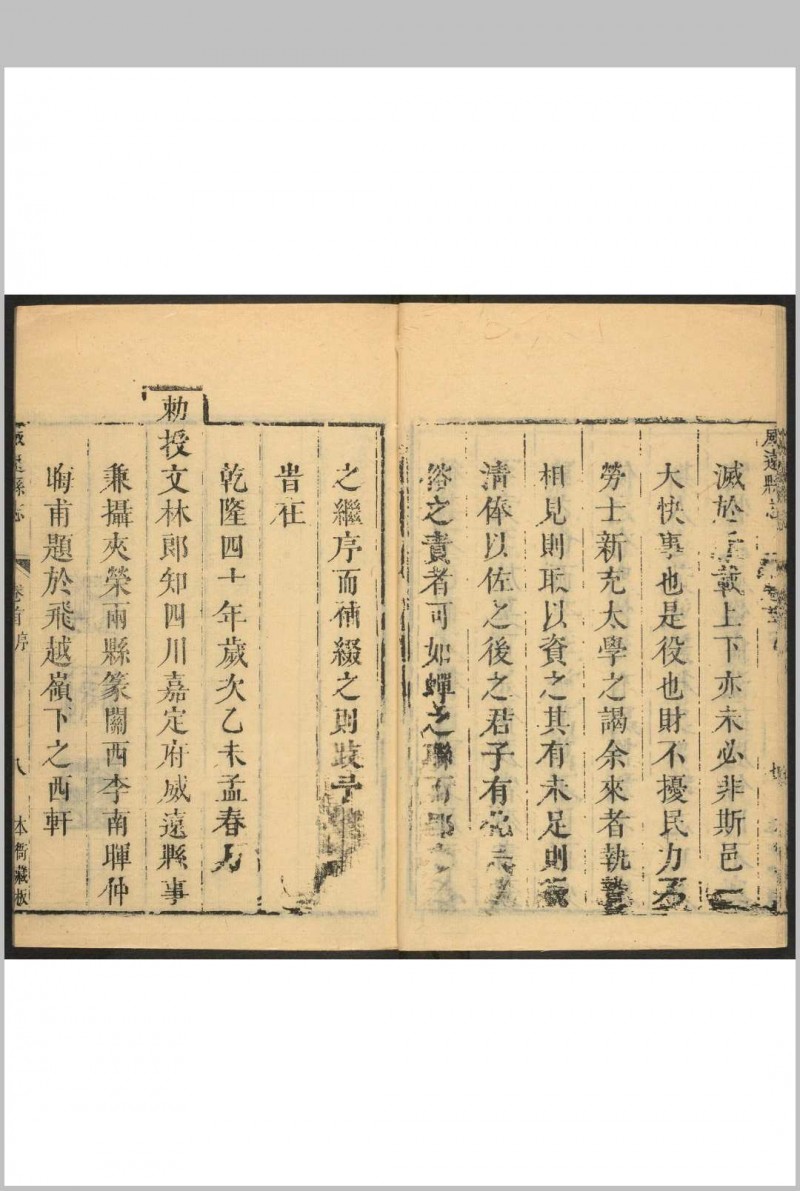 威遠縣志
滅於千載上下亦未必非斯邑一
大快事也是役也財不擾民力不
勞士新充太學之謁余來者執贄
相見則取以資之其有未足則
清俸以佐之後之君子有
咎之責者可如蟬之聯
之繼序而補綴之則
昔在
乾隆四十年歲次乙未孟春
勅授文林郎知四川嘉定府威遠縣事
兼攝夾榮兩縣篆關西李南暉仲
晦甫題於飛越嶺下之西軒
威遠縣志 卷首序 八 本衙藏板